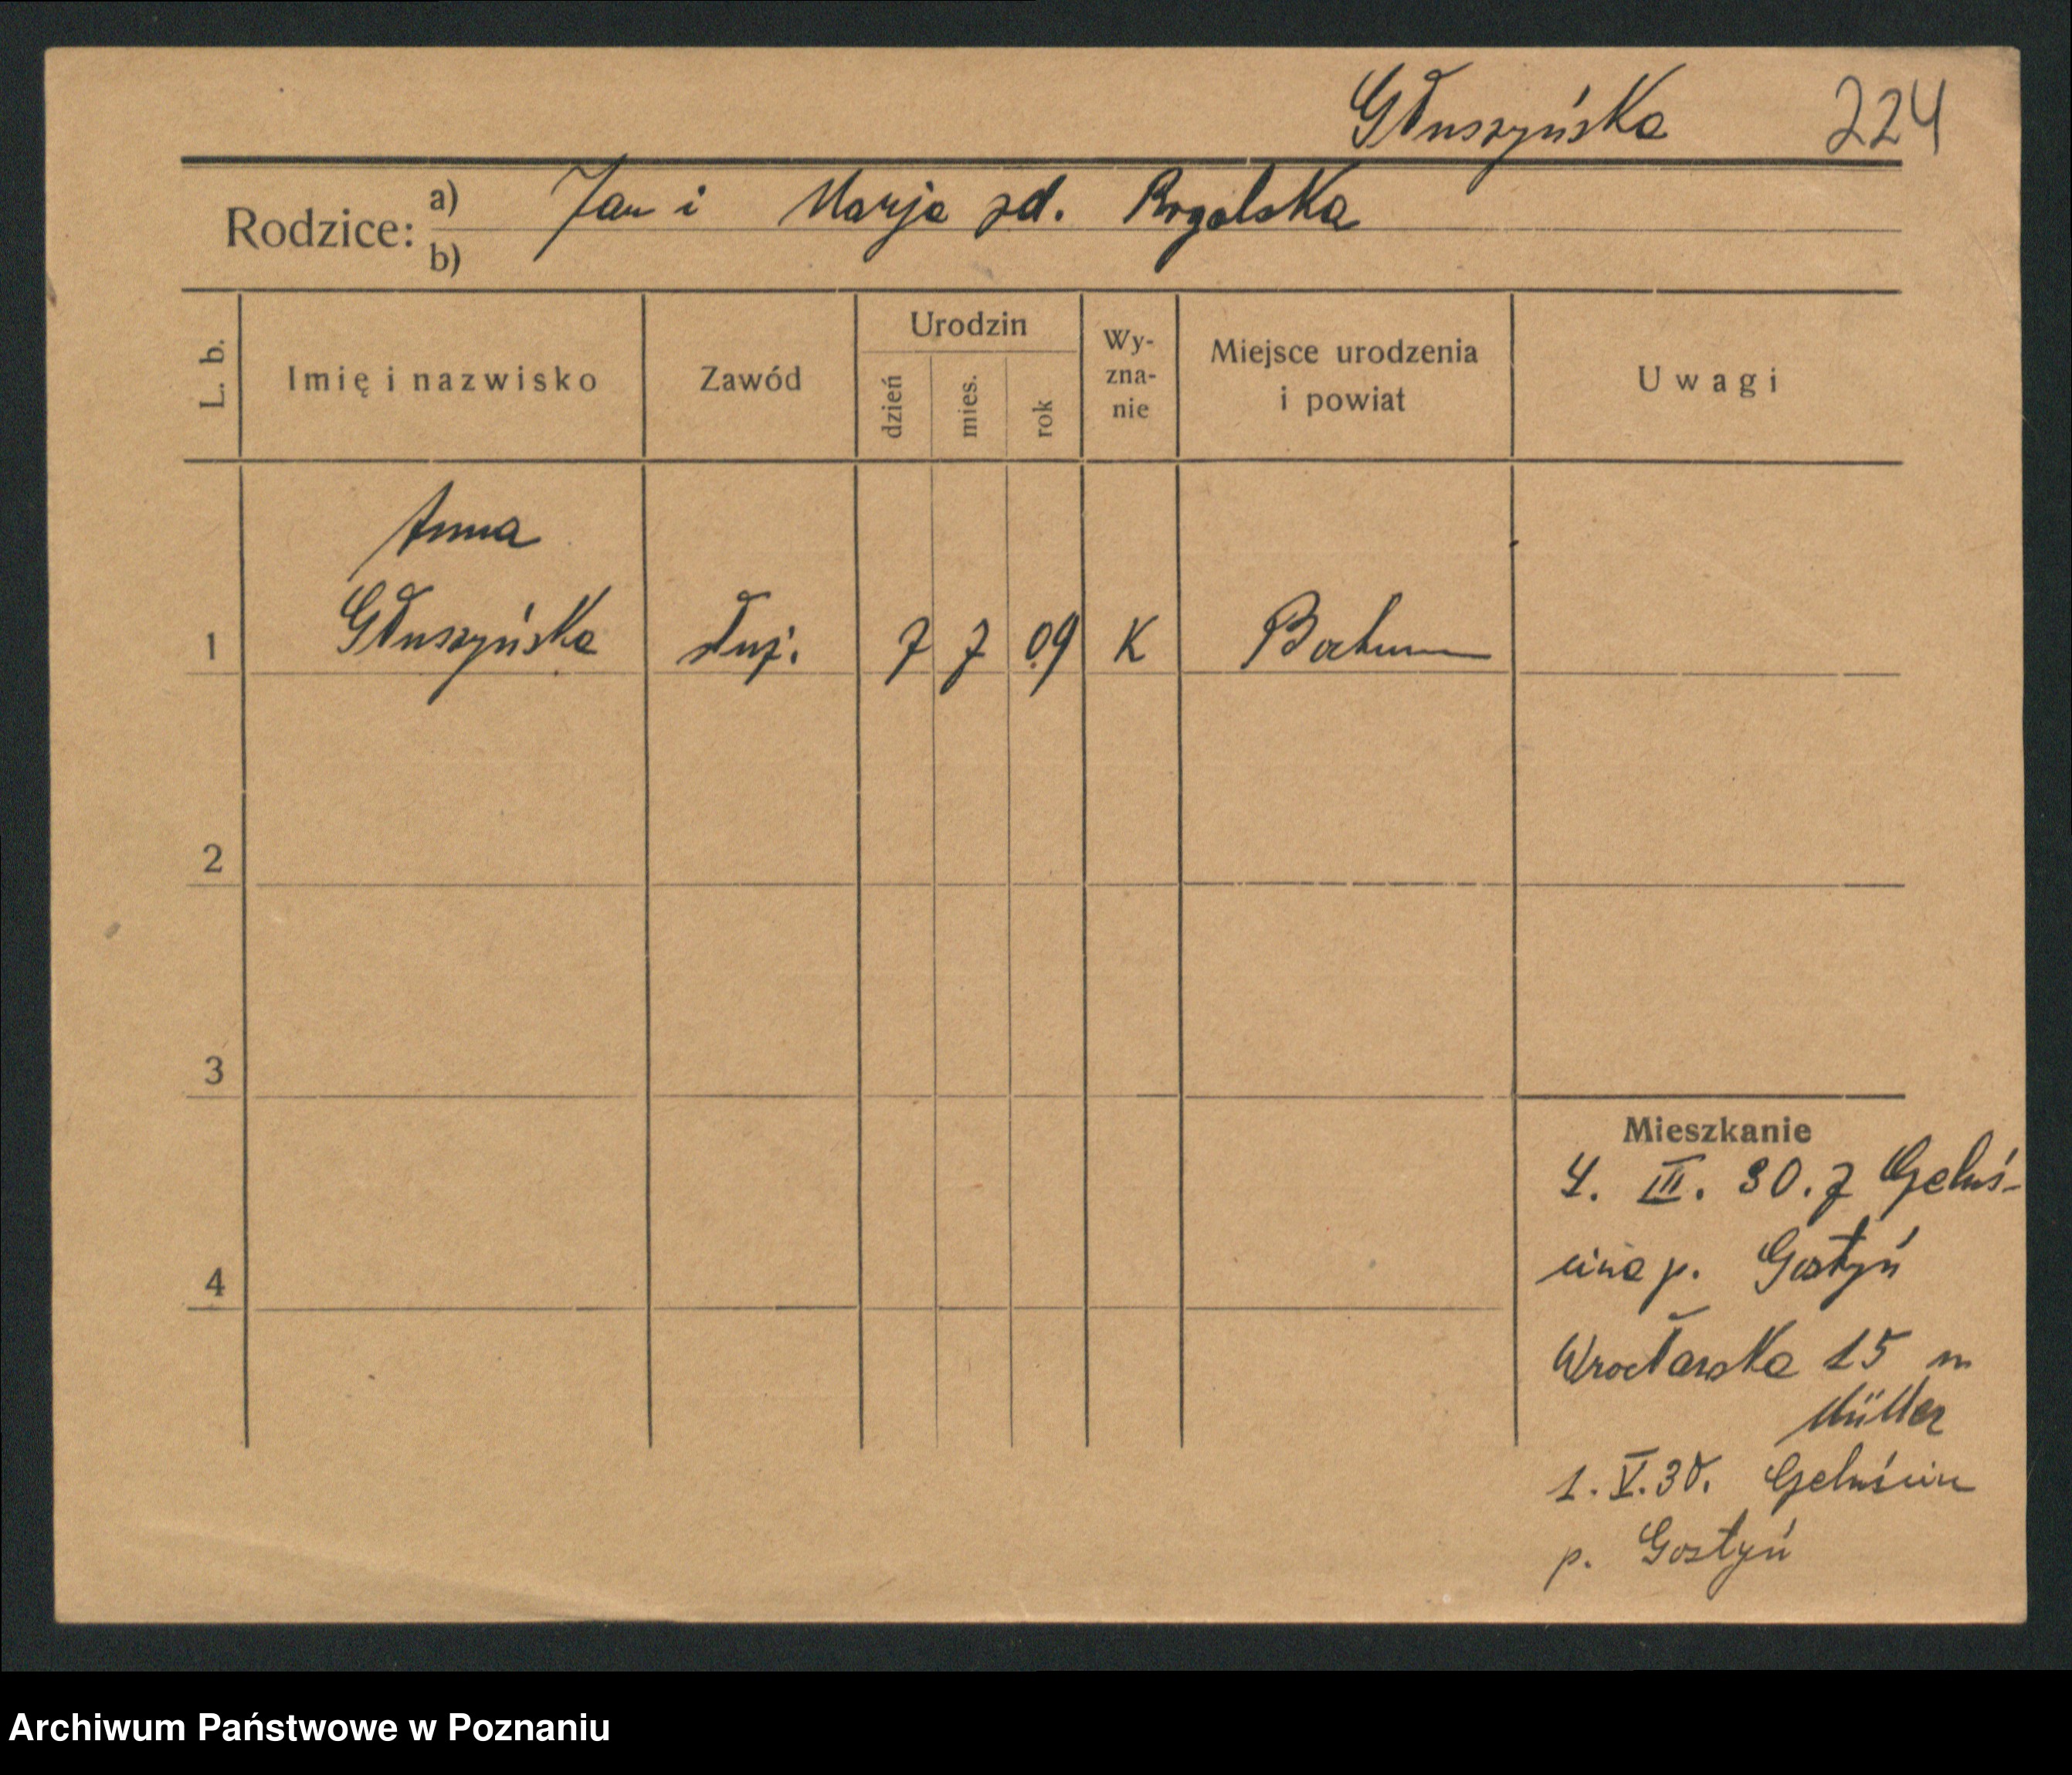 Głuszyńska 224
Rodzice: a) Jan i Marja zd. Rogalska
b)
L. b. Imię i nazwisko Zawód Urodzin dzień mies. rok Wy-zna-nie Miejsce urodzenia i powiat Uwagi
Anna
1 Głuszyńska służ. 7 7 09 K Bochum
2
3
Mieszkanie
4. III. 30. z Geluś-
4 cina p. Gostyń
Wrocławska 15 m
Müller
1. V. 30. Geluścin
p. Gostyń
Archiwum Państwowe w Poznaniu